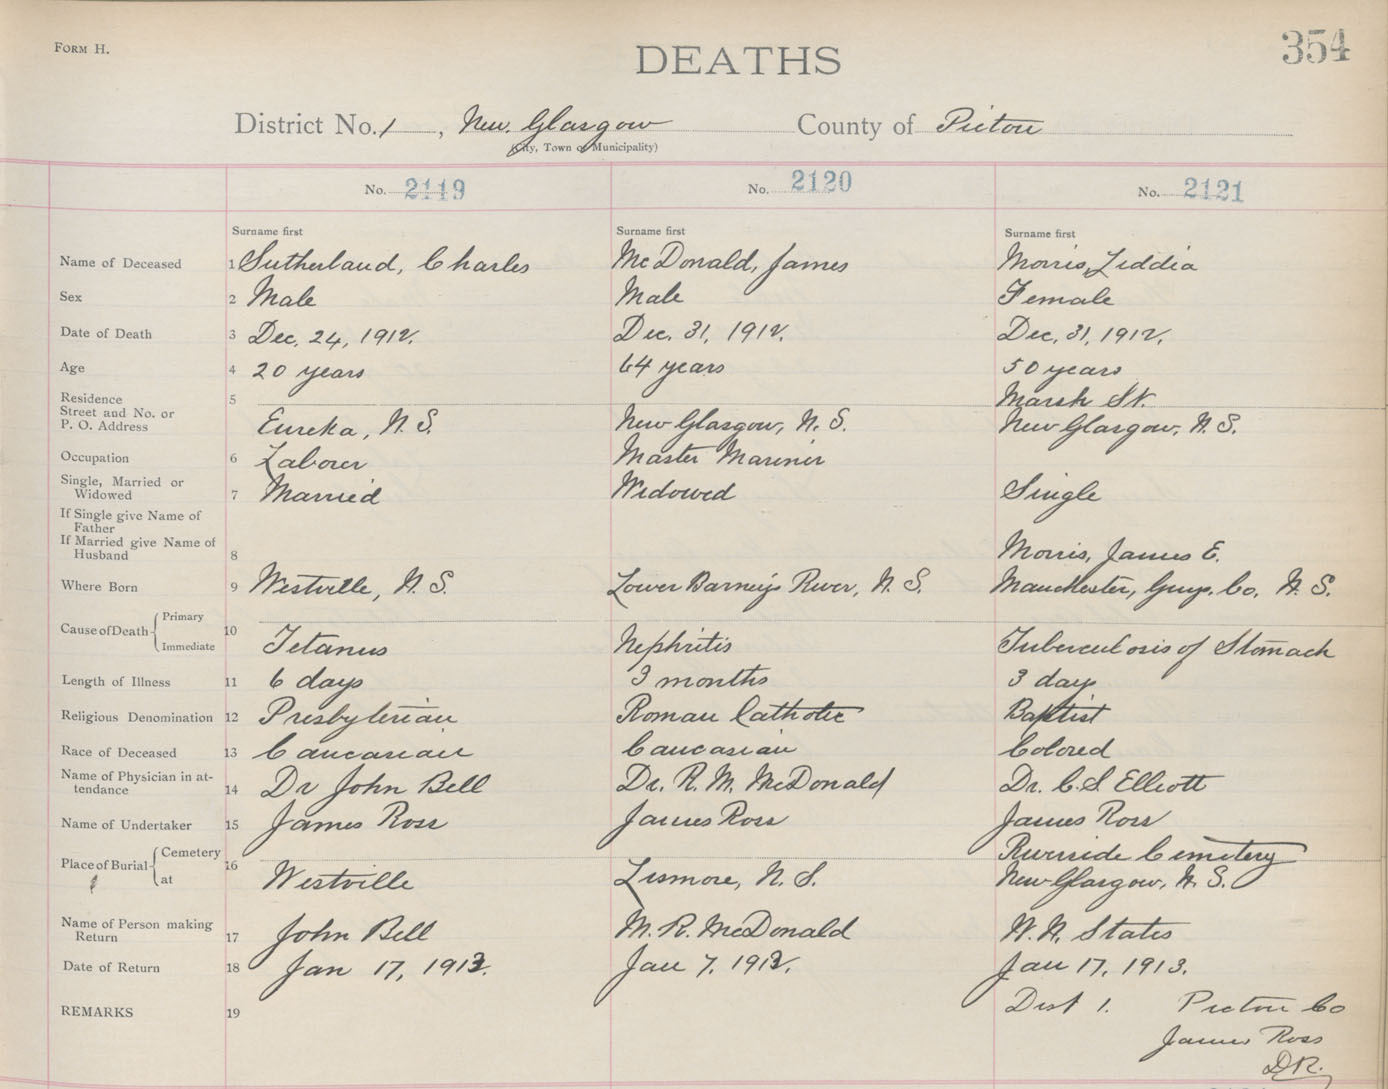 FORM H.
DEATHS
354
District No. 1, New Glasgow County of Pictou
(City, Town or Municipality)
No. 2119 No. 2120 No. 2121
Surname first Surname first Surname first
Name of Deceased 1 Sutherland, Charles McDonald, James Morris, Liddia
Sex 2 Male Male Female
Date of Death 3 Dec. 24, 1912. Dec. 31, 1912. Dec. 31, 1912.
Age 4 20 years 64 years 50 years
Residence 5 Marsh St.
Street and No. or
P. O. Address Eureka, N.S. New Glasgow, N.S. New Glasgow, N.S.
Occupation 6 Laborer Master Mariner
Single, Married or
Widowed 7 Married Widowed Single
If Single give Name of
Father
If Married give Name of
Husband 8 Morris, James E.
Where Born 9 Westville, N.S. Lower Barneys River, N.S. Manchester, Guys. Co. N.S.
Cause of Death Primary
10
Immediate Tetanus Nephritis Tuberculosis of Stomach
Length of Illness 11 6 days 3 months 3 days
Religious Denomination 12 Presbyterian Roman Catholic Baptist
Race of Deceased 13 Caucasian Caucasian Colored
Name of Physician in at-
tendance 14 Dr John Bell Dr. R. M. McDonald Dr. C. S. Elliott
Name of Undertaker 15 James Ross James Ross James Ross
Place of Burial Cemetery 16 Riverside Cemetery
at Westville Lismore, N.S. New Glasgow, N.S.
Name of Person making
Return 17 John Bell M. R. McDonald W. N. States
Date of Return 18 Jan 17, 1913. Jan 7, 1913. Jan 17, 1913.
REMARKS 19 Dist 1. Pictou Co
James Ross
D.R.